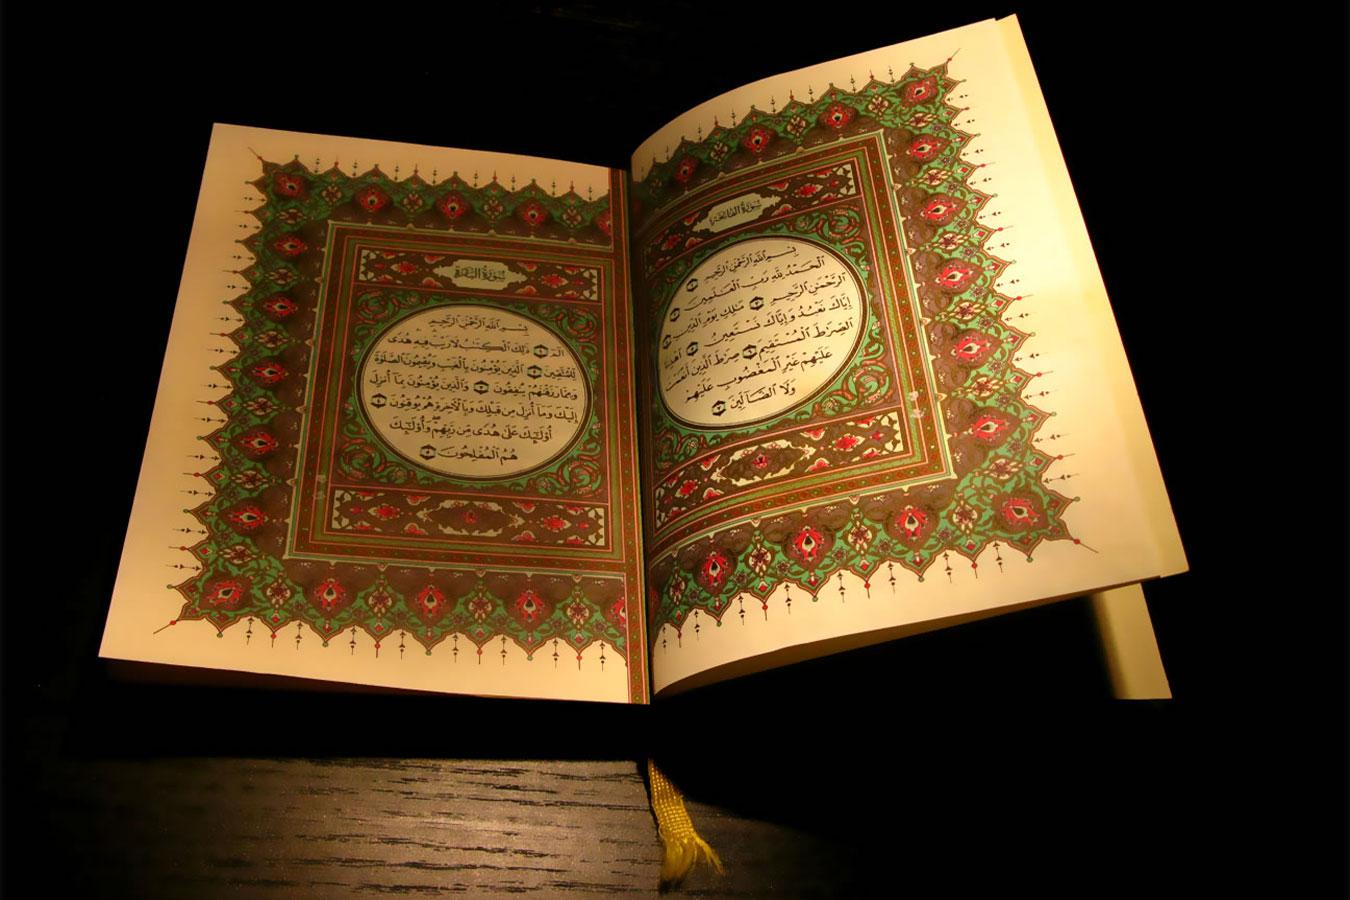 سُورَةُ الفَاتِحَةِ
بِسْمِ اللَّهِ الرَّحْمَٰنِ الرَّحِيمِ ١
الْحَمْدُ لِلَّهِ رَبِّ الْعَالَمِينَ ٢
الرَّحْمَٰنِ الرَّحِيمِ ٣ مَالِكِ يَوْمِ الدِّينِ ٤
إِيَّاكَ نَعْبُدُ وَإِيَّاكَ نَسْتَعِينُ ٥ اهْدِنَا
الصِّرَاطَ الْمُسْتَقِيمَ ٦ صِرَاطَ الَّذِينَ أَنْعَمْتَ
عَلَيْهِمْ غَيْرِ الْمَغْضُوبِ عَلَيْهِمْ
وَلَا الضَّالِّينَ ٧
سُورَةُ البَقَرَةِ
بِسْمِ اللَّهِ الرَّحْمَٰنِ الرَّحِيمِ
الم ١ ذَٰلِكَ الْكِتَابُ لَا رَيْبَ فِيهِ هُدًى
لِلْمُتَّقِينَ ٢ الَّذِينَ يُؤْمِنُونَ بِالْغَيْبِ وَيُقِيمُونَ الصَّلَوٰةَ
وَمِمَّا رَزَقْنَاهُمْ يُنْفِقُونَ ٣ وَالَّذِينَ يُؤْمِنُونَ بِمَا أُنْزِلَ
إِلَيْكَ وَمَا أُنْزِلَ مِنْ قَبْلِكَ وَبِالْآخِرَةِ هُمْ يُوقِنُونَ ٤
أُولَٰئِكَ عَلَىٰ هُدًى مِنْ رَبِّهِمْ وَأُولَٰئِكَ
هُمُ الْمُفْلِحُونَ ٥